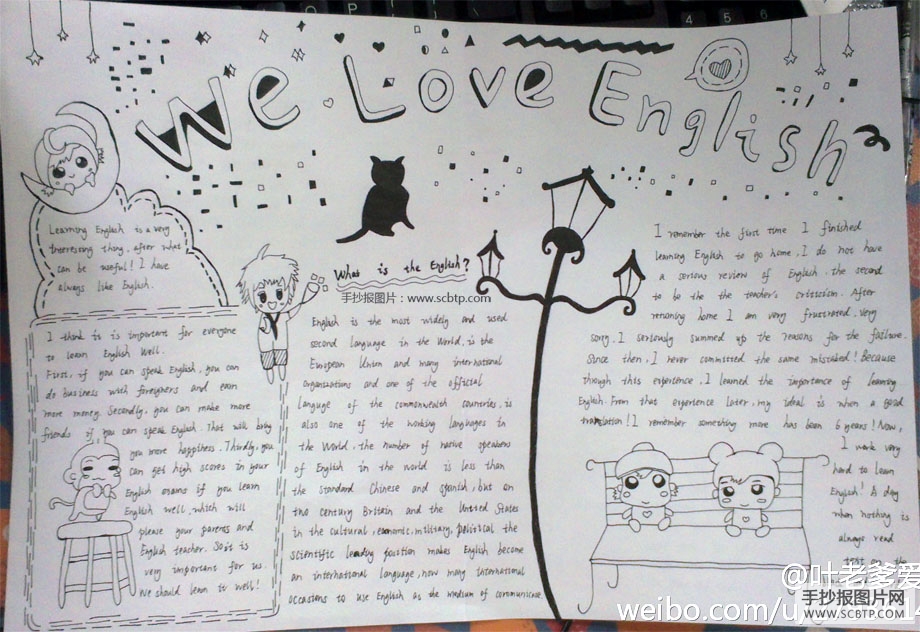 We Love English
Learning English is a very
interesting thing, after what
can be useful! I have
always like English.
I think it is important for everyone
to learn English well.
First, if you can speak English, you can
do business with foreigners and earn
more money. Secondly, you can make more
friends if you can speak English. That will bring
you more happiness. Thirdly, you
can get high scores in your
English exams if you learn
English well, which will
please your parents and
English teacher. So it is
very important for us.
We should learn it well!
What is the English?
手抄报图片:www.scbtp.com
English is the most widely and used
second language in the World, is the
European Union and many international
organizations and one of the official
languge of the commonwealth countries, is
also one of the working languages in
the World, the number of native speakers
of English in the world is less than
the standard Chinese and spanish, but on
two century Britain and the United States
in the cultural, economic, military, political the
scientific leading position makes English become
an international language, now many international
occasions to use English as the medium of
I remember the first time I finished
learning English to go home, I do not have
a serious review of English. the second
to be the the teacher's criticism. After
retuning home I am very frustrated, very
sorry. I seriously summed up the reasons for the failure.
Since then, I never committed the same mistaked! Because
though this experience, I learned the importance of learning
English. From that experience later, my ideal is when a good
translation! I remember something more has been 6 years! Now,
I work very
hard to learn
English! A day
when nothing is
always read
text on the
@叶老爹爱
weibo.com/u/
手抄报图片网
WWW.SCBTP.COM
4 5 6